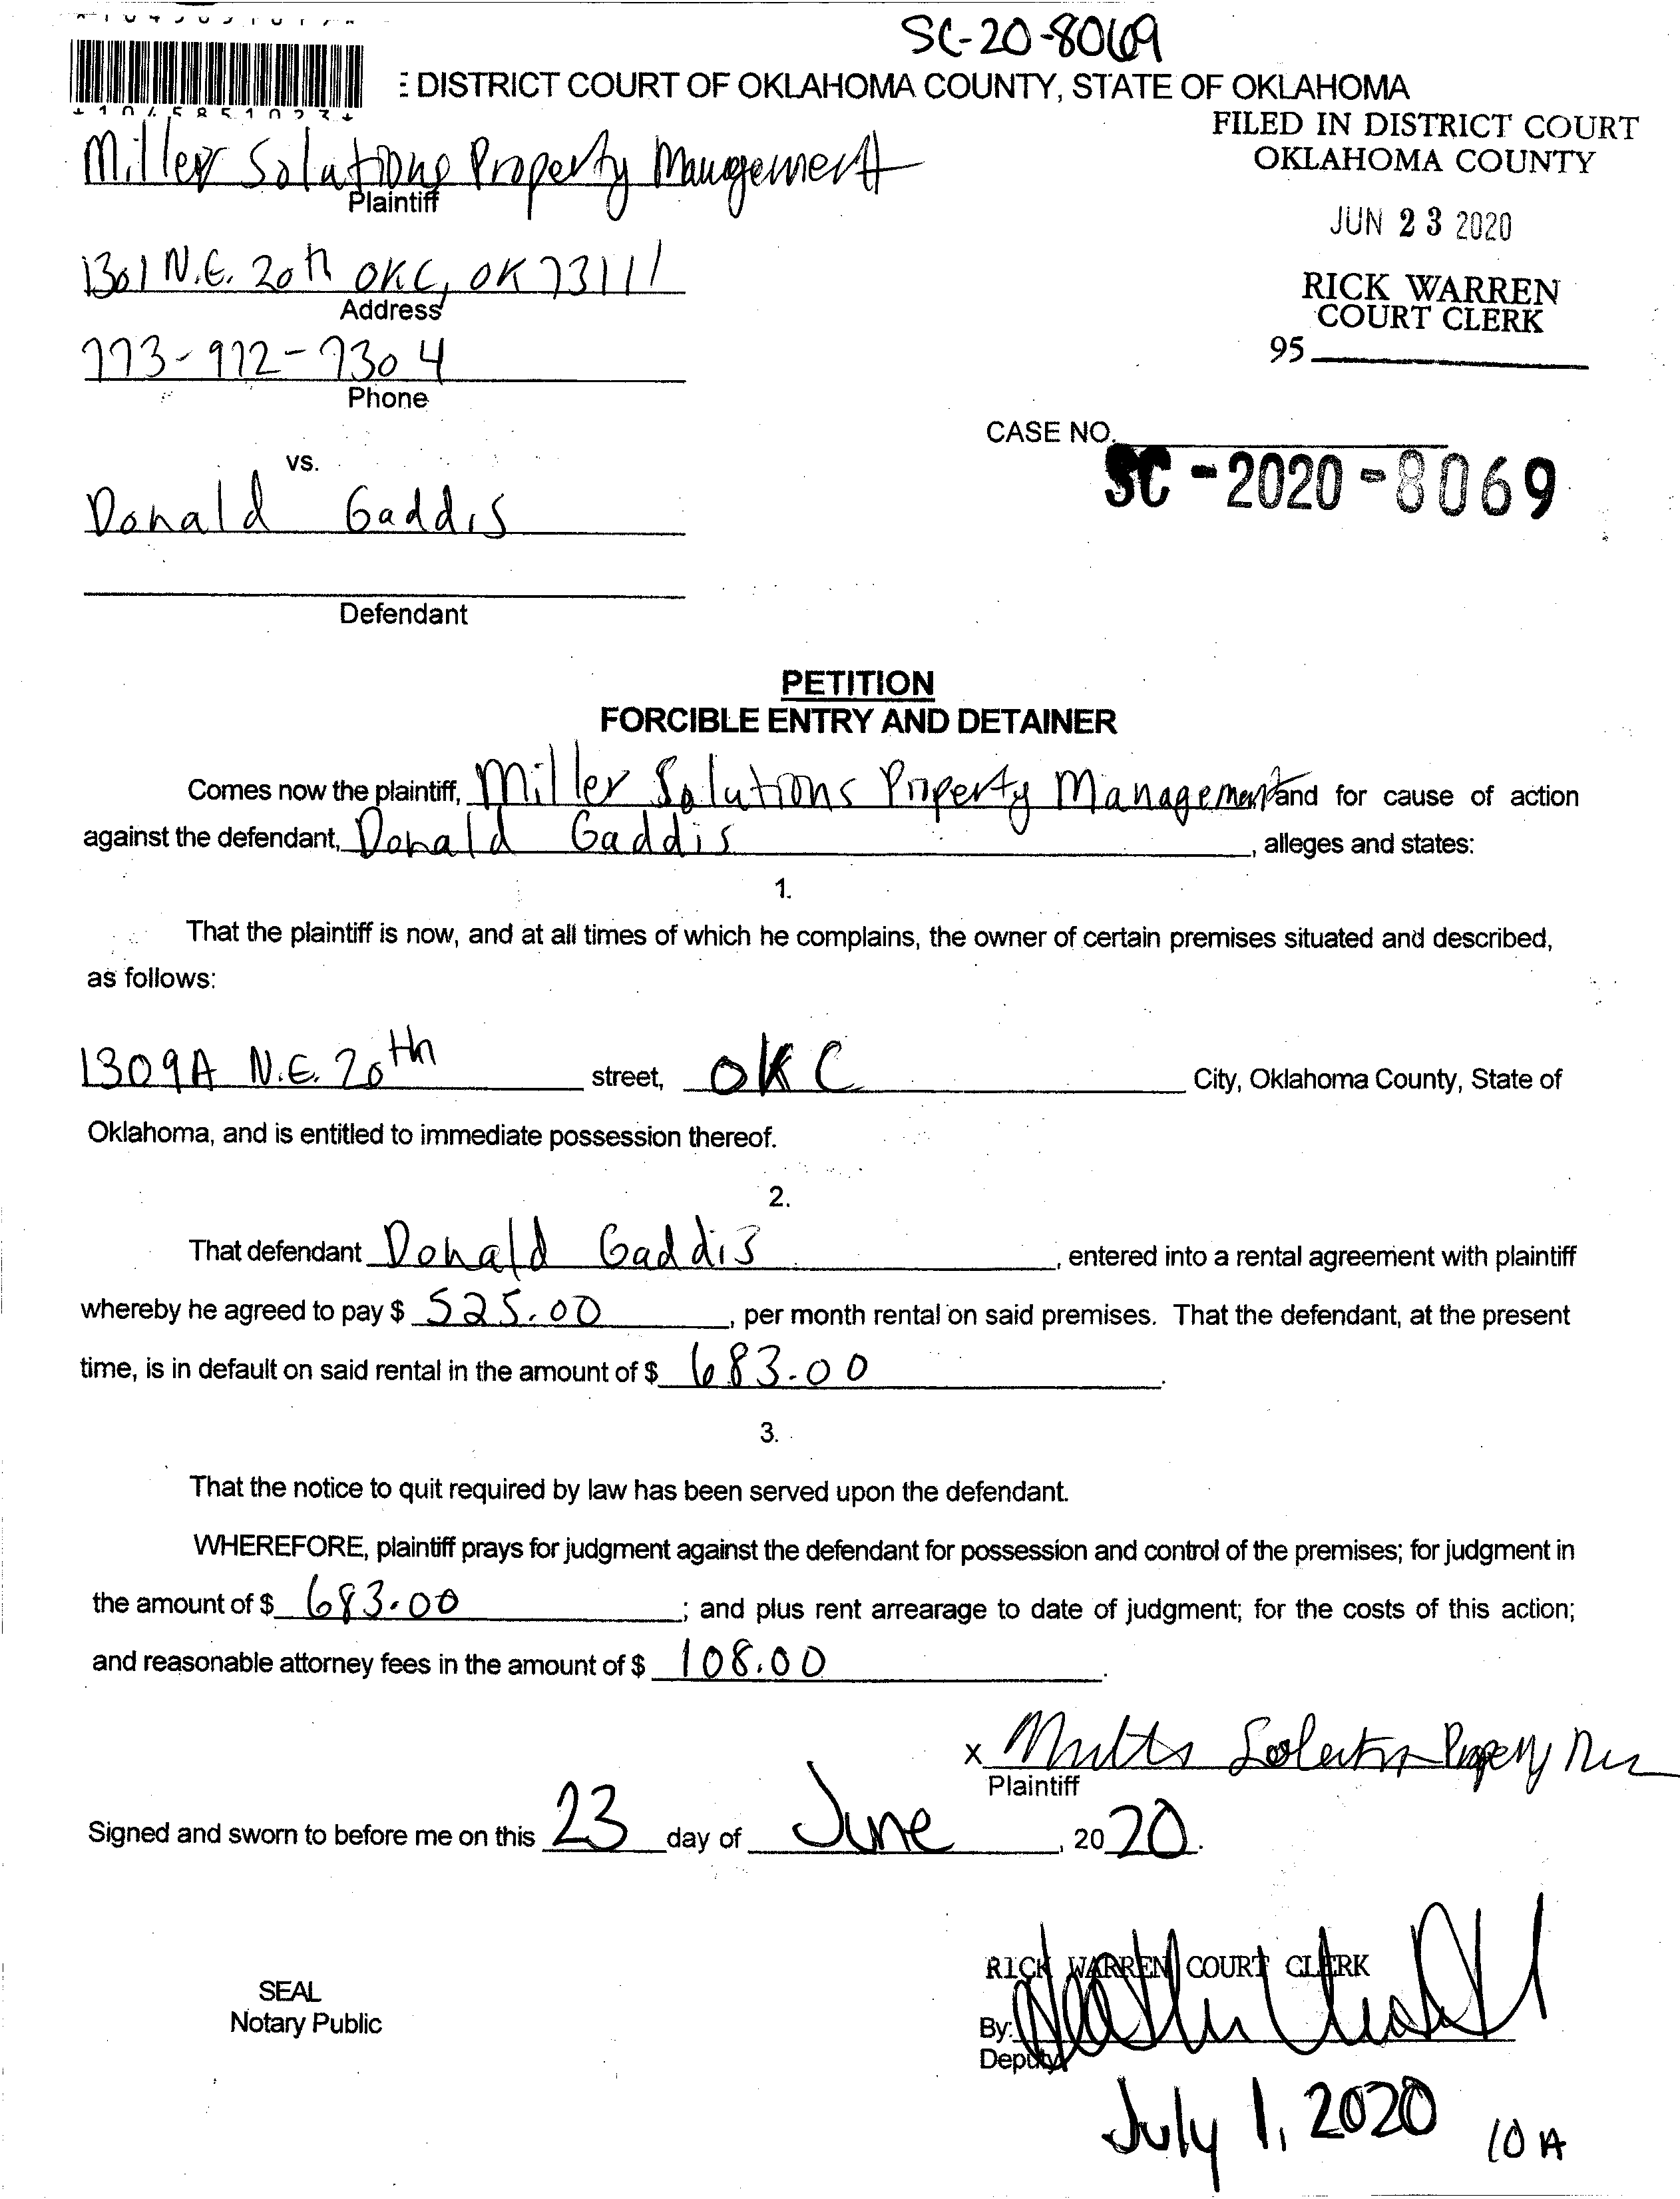 SC-20-8069
DISTRICT COURT OF OKLAHOMA COUNTY, STATE OF OKLAHOMA
FILED IN DISTRICT COURT
OKLAHOMA COUNTY
Miller Solutions Property Management
Plaintiff
JUN 23 2020
1301 N.E. 20th OKC, OK 73111
Address
RICK WARREN
COURT CLERK
95
773-972-7304
Phone
CASE NO.
SC-2020-8069
vs.
Donald Gaddis
Defendant
PETITION
FORCIBLE ENTRY AND DETAINER
Comes now the plaintiff, Miller Solutions Property Management and for cause of action
against the defendant, Donald Gaddis, alleges and states:
1.
That the plaintiff is now, and at all times of which he complains, the owner of certain premises situated and described,
as follows:
1309A N.E. 20th street, OKC City, Oklahoma County, State of
Oklahoma, and is entitled to immediate possession thereof.
2.
That defendant Donald Gaddis, entered into a rental agreement with plaintiff
whereby he agreed to pay $ 525.00, per month rental on said premises. That the defendant, at the present
time, is in default on said rental in the amount of $ 683.00.
3.
That the notice to quit required by law has been served upon the defendant.
WHEREFORE, plaintiff prays for judgment against the defendant for possession and control of the premises; for judgment in
the amount of $ 683.00; and plus rent arrearage to date of judgment; for the costs of this action;
and reasonable attorney fees in the amount of $ 108.00.
X
Plaintiff
Signed and sworn to before me on this 23 day of June, 2020.
RICK WARREN COURT CLERK
SEAL
Notary Public
By:
Deputy
July 1, 2020 10 A